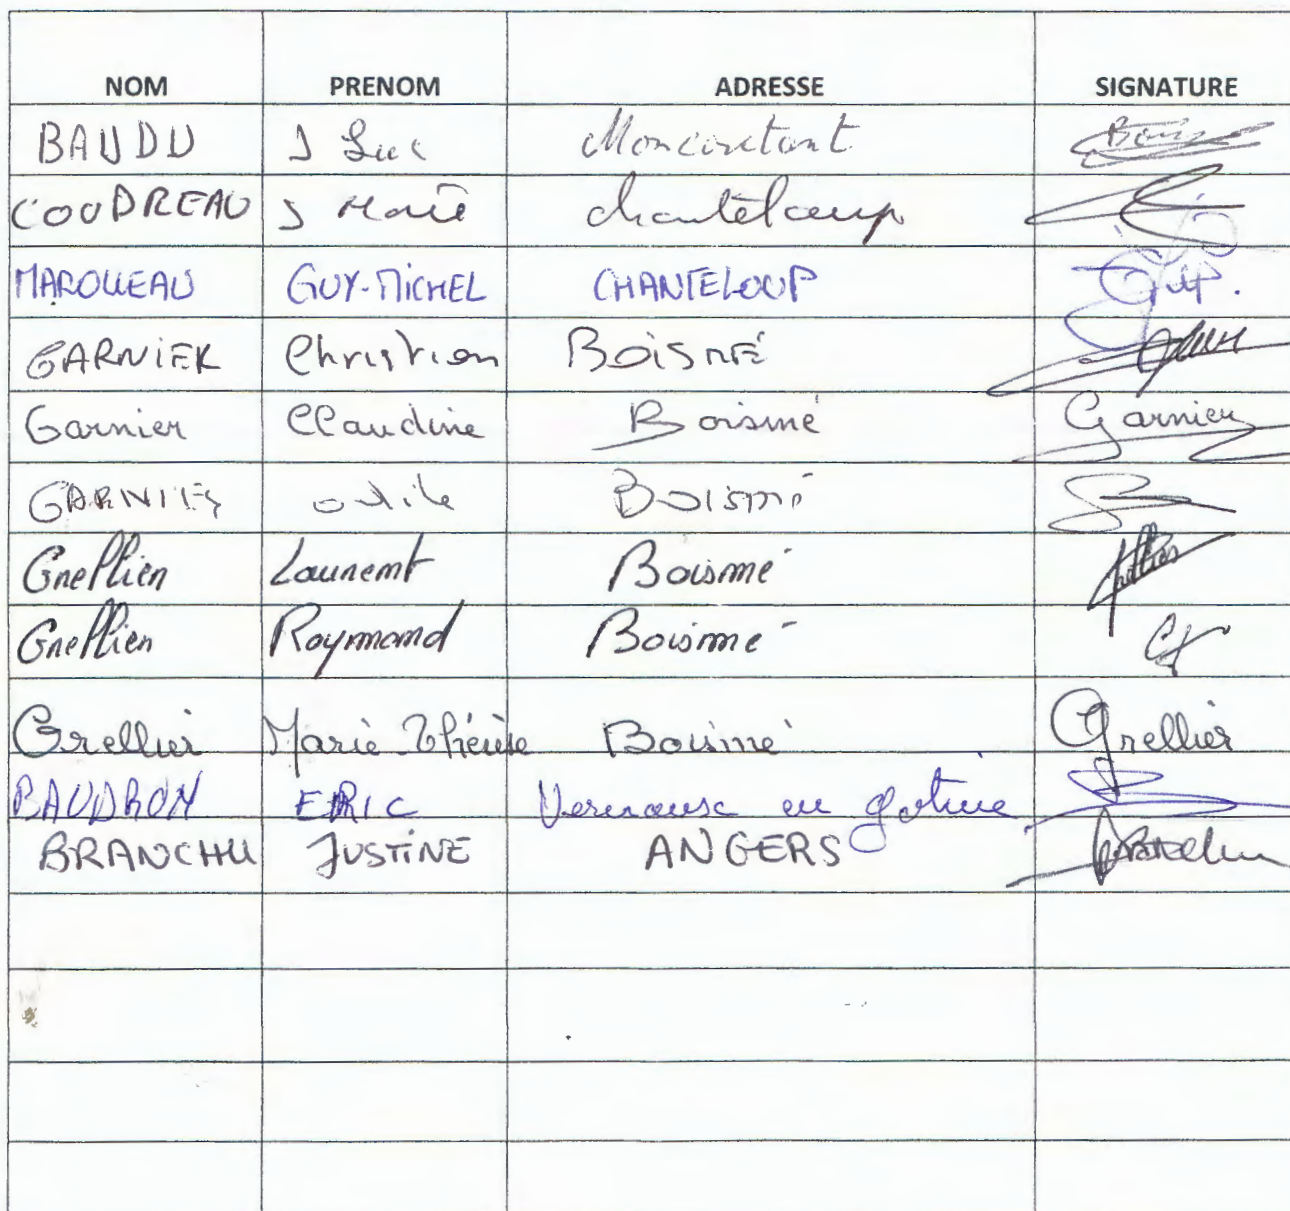 NOM PRENOM ADRESSE SIGNATURE
BAUDU J Luc Moncoutant
COUDREAU J Marie chanteloup
MAROLLEAU GUY-MICHEL CHANTELOUP
GARNIER Christian BOISMÉ
Garnier Claudine Boismé Garnier
GARNIER odile Boismé
Grellier Laurent Boismé
Grellier Raymond Boismé
Grellier Marie-Thérèse Boismé Grellier
BAUDRON ERIC Vernoux en gatine
BRANCHU JUSTINE ANGERS